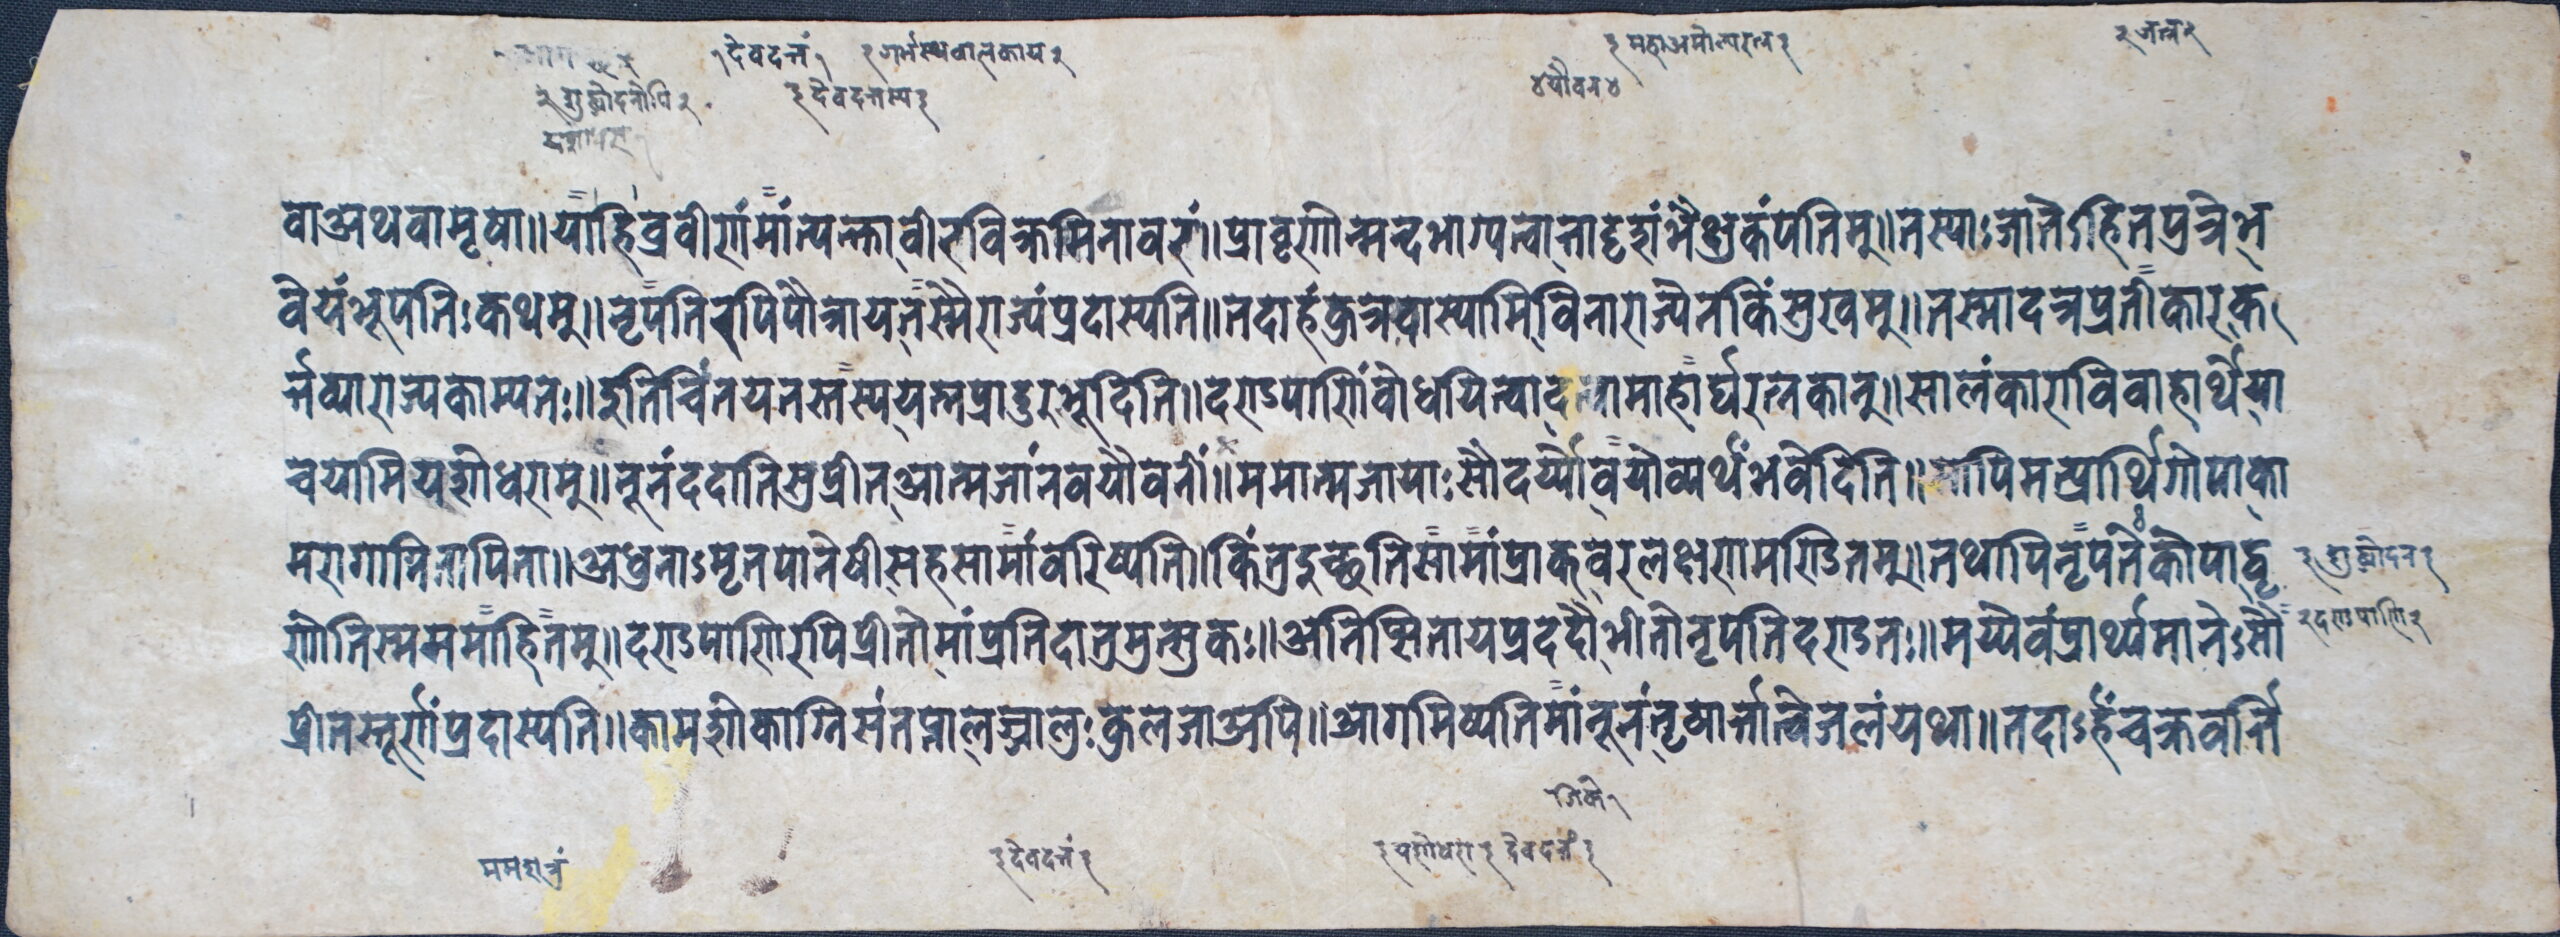 १ देवदत्तं १ २ गर्भस्थबालकाय २ ३ महाअमोल्यरत्न ३ २ अत्र २
२ शुद्धोदनोपि २ ३ देवदत्तस्य ३ ४ यौवन ४
वा अथवा मृषा॥ या हि प्रवीणां मां त्यक्त्वा वीरविक्रमिनावरं॥ प्रावृरणोन्मन्दभाग्यत्वात्तादृशं भैक्षुकं पतिम्॥ तस्याः जातेऽहि न प्रत्रे भ
वेयं भूपतिः कथम्॥ नृपतिरपि पौत्राय तस्मै राज्यं प्रदास्यति॥ तदाहं कुत्र वास्यामि विना राज्येन किं सुखम्॥ तस्मादत्र प्रतीकारः क
र्त्तव्या राज्यकाम्यतः॥ इति चिंतयतस्तस्य यत्न प्रादुरभूदिति॥ दण्डपाणिं बोधयित्वा माहार्घरत्नकान्॥ सालंकारा विवाहार्थे या
चयामि यशोधराम्॥ नूनं ददाति सुप्रीत आत्मजां नवयौवनीं॥ ममात्मजायाः सौदर्य्यो वयो व्यर्थं भवेदिति॥ सापि मत्प्रार्थि गोपा का
मरागाग्नितापिता॥ अधुनाऽमृतपानेषी सहसा मां वरिष्यति॥ किंतु इच्छति सा मां प्राक् वरलक्षणमण्डितम्॥ तथापि नृपते कोपाद्वृ
२ शुद्धोदन २
णोति स्म ममाहितम्॥ दण्डपाणिरपि प्रीतो मां प्रति दातुमुत्सुकः॥ अनिप्सिताय प्रददौ भीतो नृपतिदण्डतः॥ मय्येवं प्रार्थ्यमानेऽसौ
२ दण्डपाणि २
प्रीतस्तूर्णं प्रदास्यति॥ कामशोकाग्निसंतप्ता लज्जालुः कुलजा अपि॥ आगमिष्यति मां नूनं तृषार्त्तात्वि जलं यथा॥ तदाऽहं चक्रवर्त्ति
मम शत्रुं ३ देवदत्तं ३ ३ यशोधरा ३ देवदत्तं ३